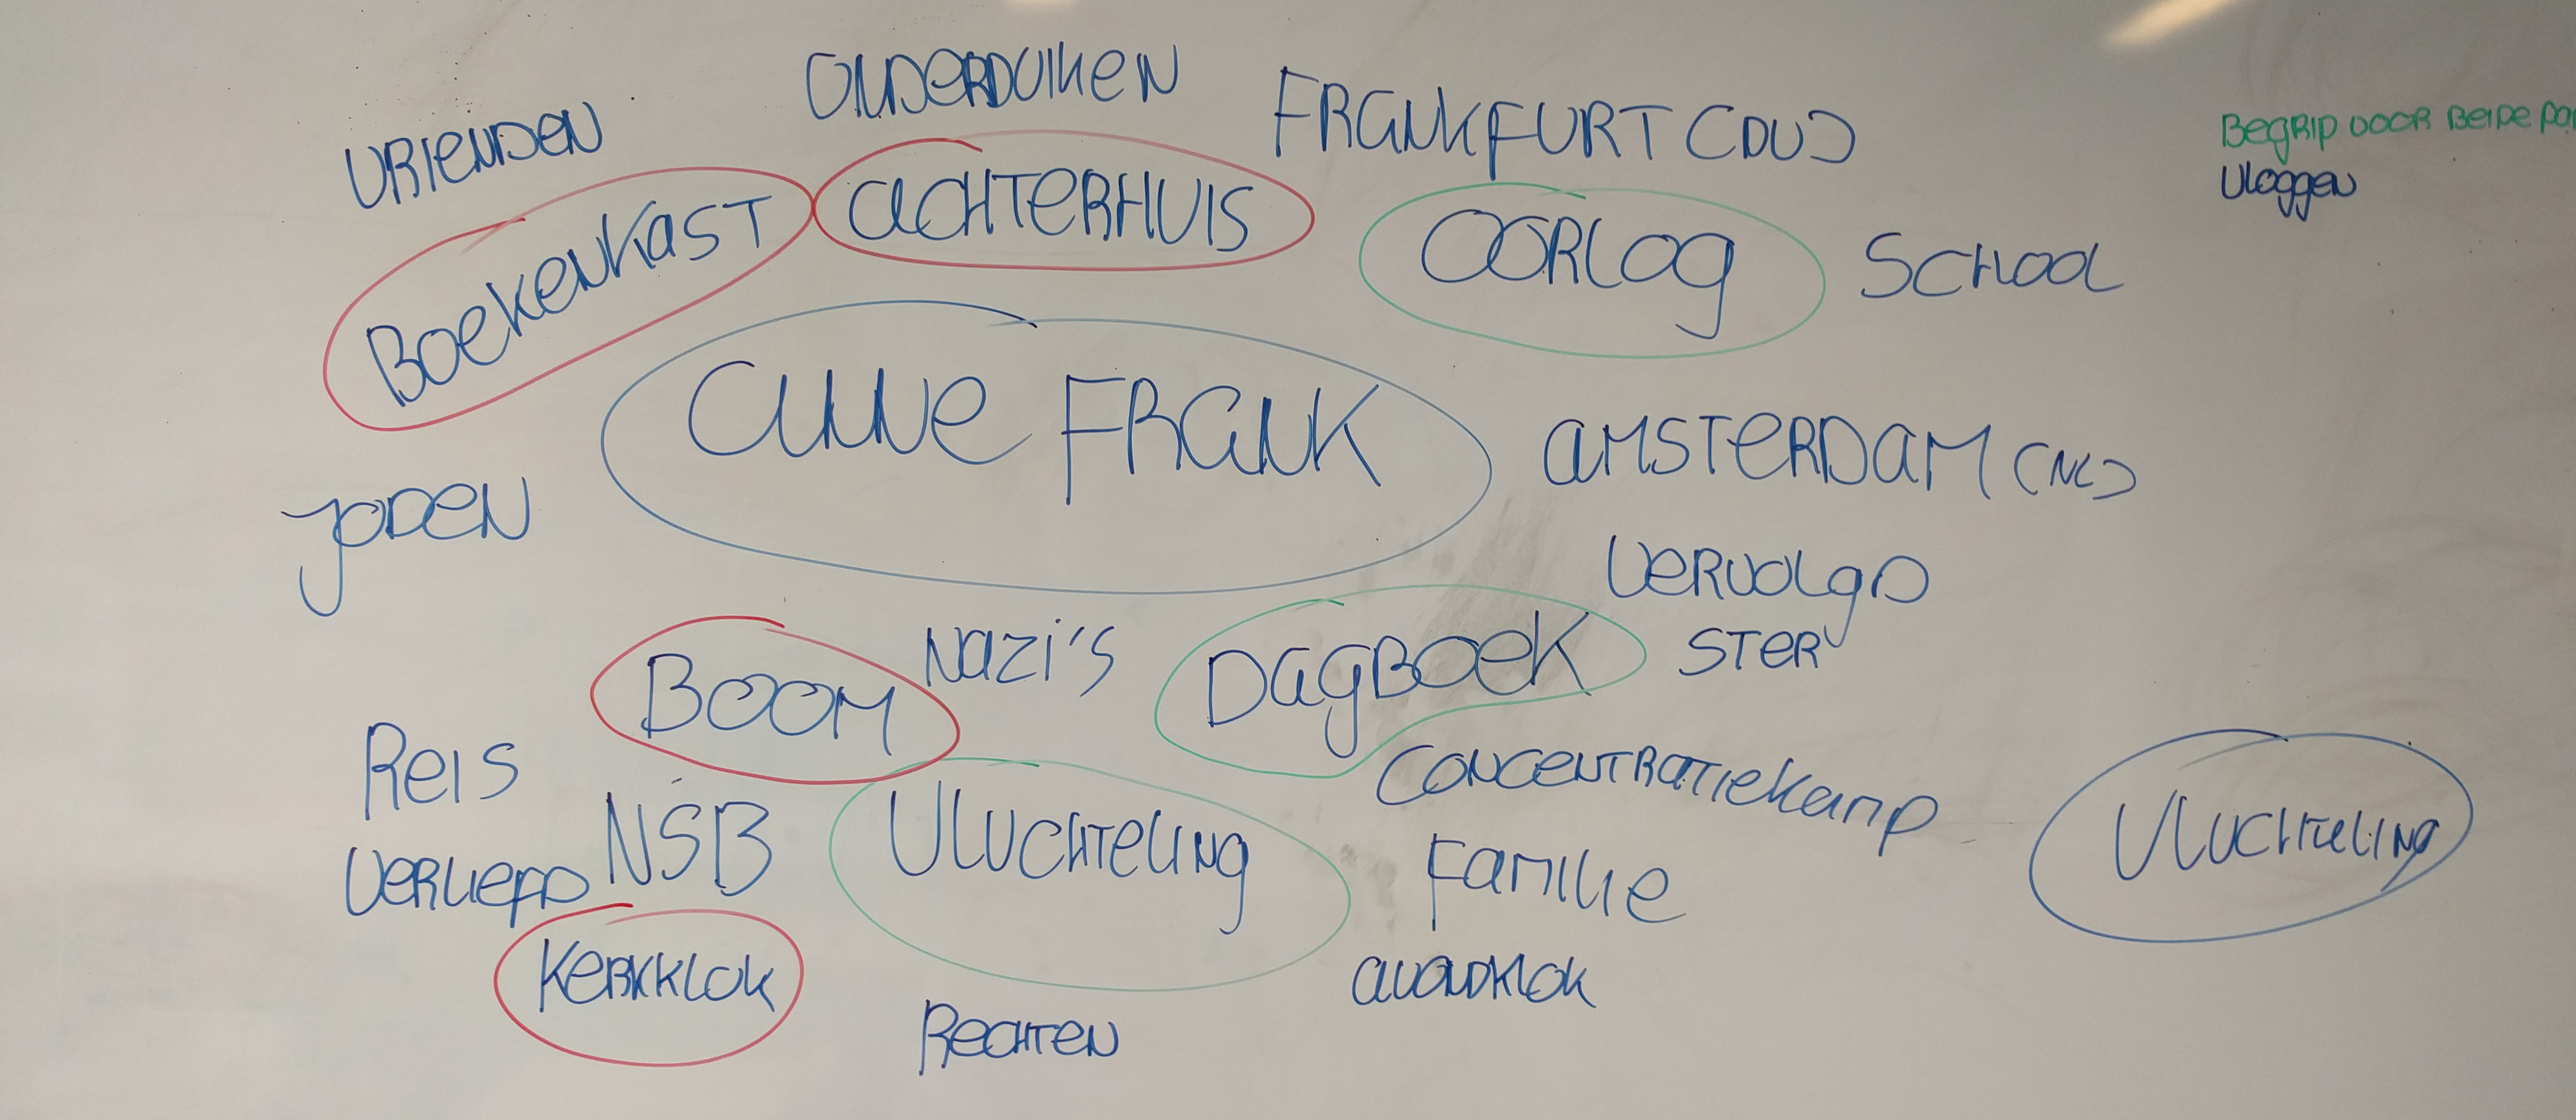 ONDERDUIKEN
VRIENDEN
FRANKFURT (DU)
BEGRIP VOOR BEIDE
Vloggen
BOEKENKAST
ACHTERHUIS
OORLOG
SCHOOL
ANNE FRANK
AMSTERDAM (NL)
JODEN
VERVOLGD
NAZI'S
DAGBOEK
STER
BOOM
REIS
CONCENTRATIEKAMP
NSB
VLUCHTELING
VLUCHTELING
VERLIEFD
FAMILIE
KERKKLOK
AVONDKLOK
RECHTEN